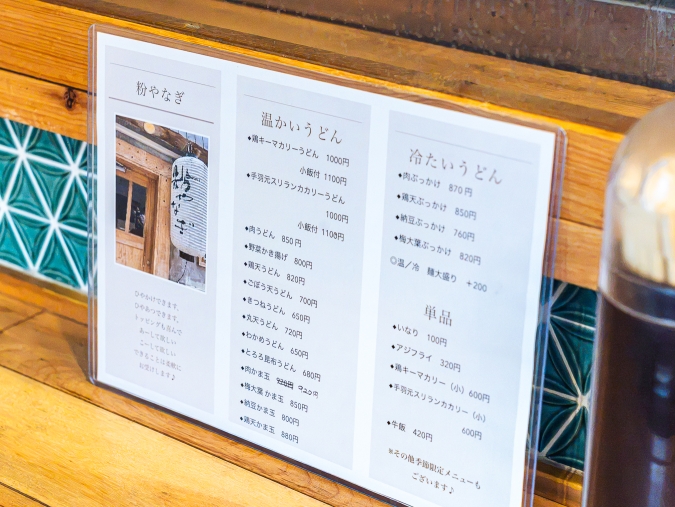 粉やなぎ
粉やなぎ
ひやかけできます。
ひやあつできます。
トッピングも喜んで
あーして欲しい
こーして欲しい
できることは素敵に
お受けします♪
温かいうどん
◆鶏キーマカリーうどん 1000円
小飯付 1100円
◆手羽元スリランカカリーうどん
1000円
小飯付 1100円
◆肉うどん 850円
◆野菜かき揚げ 800円
◆鶏天うどん 820円
◆ごぼう天うどん 700円
◆きつねうどん 650円
◆丸天うどん 720円
◆わかめうどん 650円
◆とろろ昆布うどん 680円
◆肉かま玉
◆梅大葉 かま玉 850円
◆納豆かま玉 800円
◆鶏天かま玉 880円
冷たいうどん
◆肉ぶっかけ 870円
◆鶏天ぶっかけ 850円
◆納豆ぶっかけ 760円
◆梅大葉ぶっかけ 820円
◎温/冷 麺大盛り +200
単品
◆いなり 100円
◆アジフライ 320円
◆鶏キーマカリー(小)600円
◆手羽元スリランカカリー(小)
600円
◆牛飯 420円
※その他季節限定メニューも
ございます♪